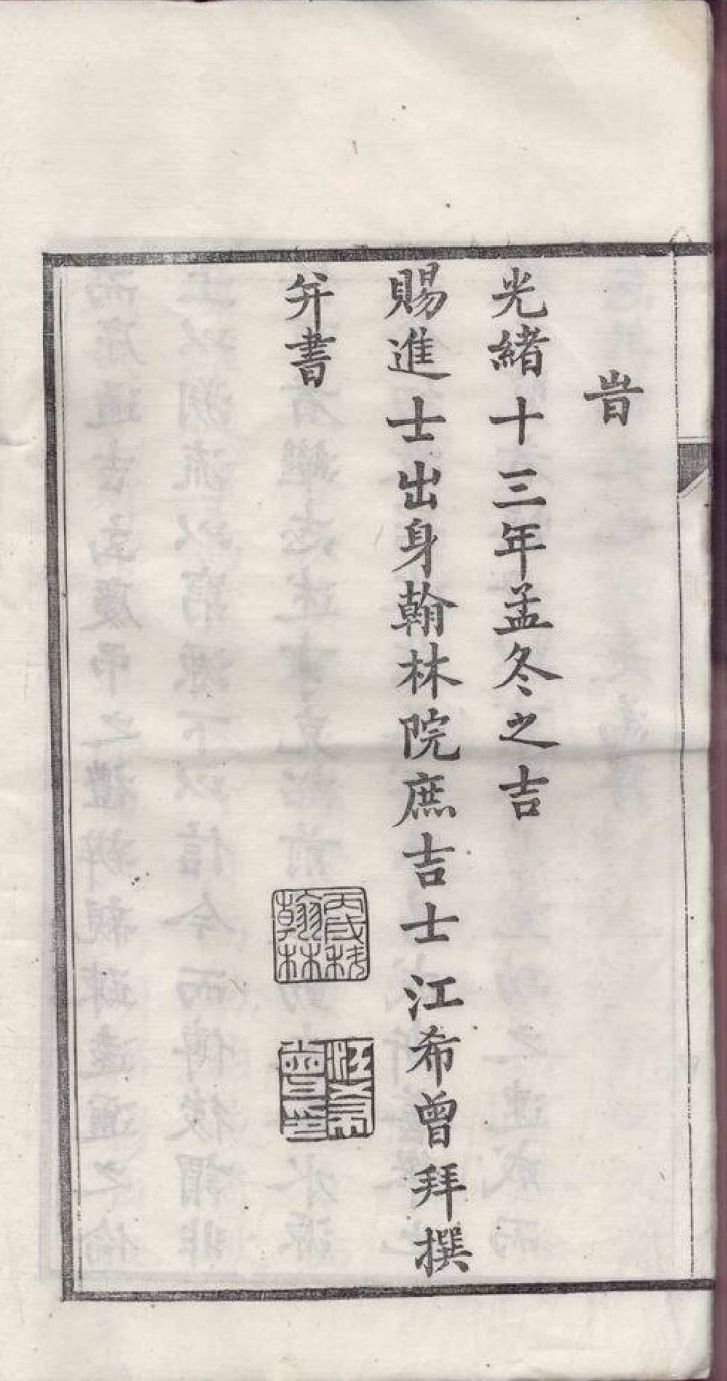 旹
光緒十三年孟冬之吉
賜進士出身翰林院庶吉士江希曾拜撰
并書
丙戌科翰林
江希曾印